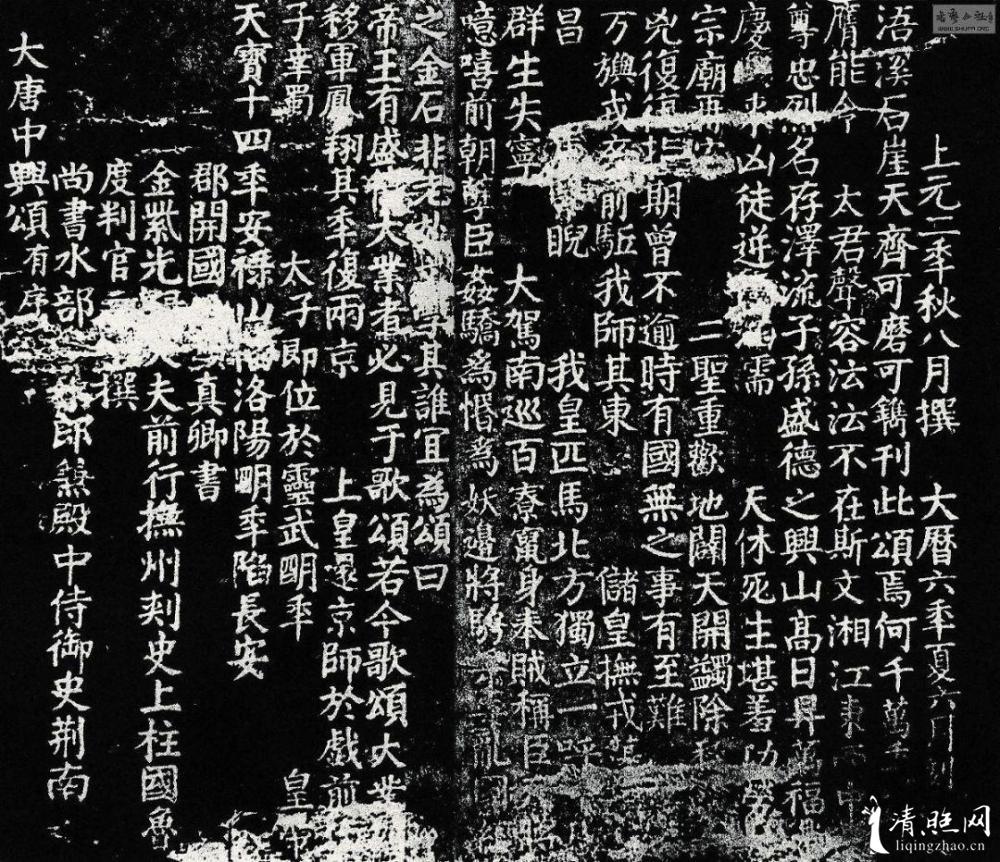 大唐中興頌有序
尚書水部郎兼殿中侍御史荊南
度判官撰
金紫光大夫前行撫州刺史上柱國魯
郡開國真卿書
天寶十四年安祿山陷洛陽明年陷長安
子幸蜀 太子即位於靈武明年 皇帝
移軍鳳翔其年復兩京 上皇還京師於戲前
帝王有盛大業者必見于歌頌若今歌頌大業
之金石非老學其誰宜為頌曰
噫嘻前朝孽臣姦驕為惛為妖邊將騁亂國
群生失寧 大駕南巡百寮竄身奉賊稱臣
昌睨 我皇匹馬北方獨立一呼
万旟戎卒前駈我師其東 儲皇撫戎
兇復復指期曾不逾時有國無之事有至難
宗廟再安 二聖重歡地闢天開蠲除
慶來凶徒逆濡 天休死生堪羞功勞
尊忠烈名存澤流子孫盛德之興山高日昇萬福
膺能令 大君聲容沄沄不在斯文湘江東西中
浯溪石崖天齊可磨可鐫刊此頌焉何千萬年
上元二年秋八月撰 大曆六年夏六月刻
清照网
liqingzhao.cn